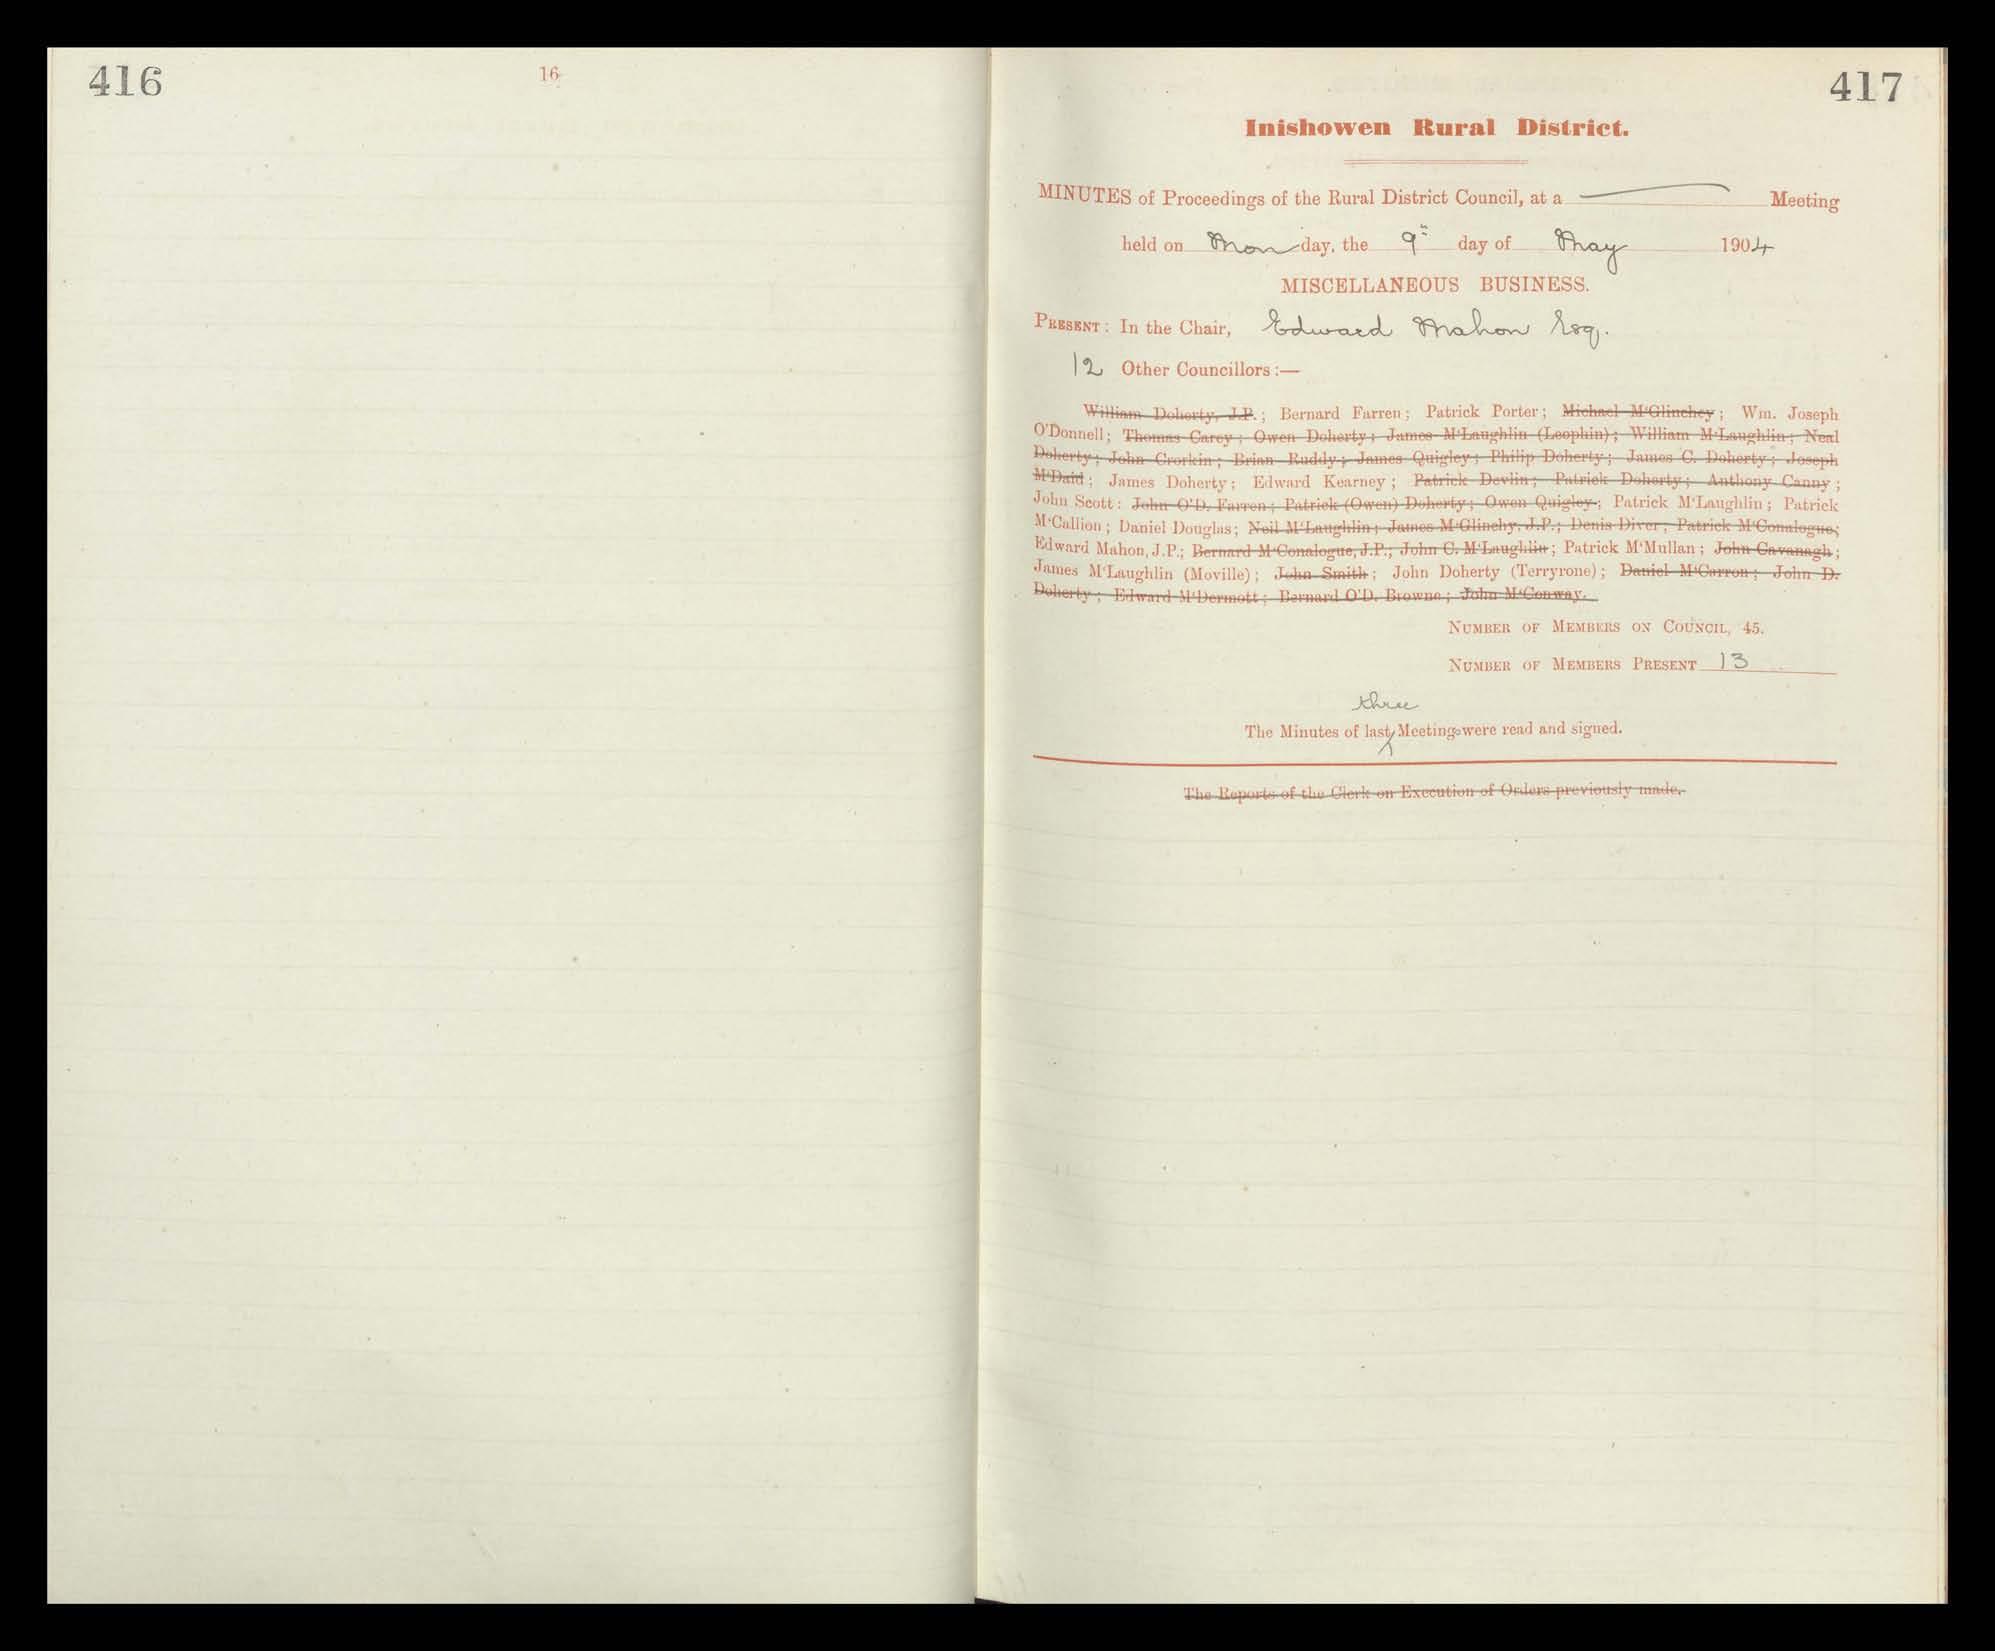 416
16
417
Inishowen Rural District.
MINUTES of Proceedings of the Rural District Council, at a Meeting
held on Monday, the 9th day of May 1904
MISCELLANEOUS BUSINESS.
PRESENT: In the Chair, Edward Mahon Esq.
12 Other Councillors :—
William Doherty, J.P.; Bernard Farren; Patrick Porter; Michael M'Glinchey; Wm. Joseph
O'Donnell; Thomas Carey; Owen Doherty; James M'Laughlin (Leophin); William M'Laughlin; Neal
Doherty; John Crorkin; Brian Ruddy; James Quigley; Philip Doherty; James C. Doherty; Joseph
M'Daid; James Doherty; Edward Kearney; Patrick Devlin; Patrick Doherty; Anthony Canny;
John Scott: John O'D. Farren; Patrick (Owen) Doherty; Owen Quigley; Patrick M'Laughlin; Patrick
M'Callion; Daniel Douglas; Neil M'Laughlin; James M'Glinchy, J.P.; Denis Diver; Patrick M'Conalogue;
Edward Mahon, J.P.; Bernard M'Conalogue, J.P.; John C. M'Laughlin; Patrick M'Mullan; John Cavanagh;
James M'Laughlin (Moville); John Smith; John Doherty (Terryrone); Daniel M'Carron; John D.
Doherty; Edward M'Dermott; Bernard O'D. Browne; John M'Conway.
NUMBER OF MEMBERS ON COUNCIL, 45.
NUMBER OF MEMBERS PRESENT 13
three
The Minutes of last Meetings were read and signed.
The Reports of the Clerk on Execution of Orders previously made.